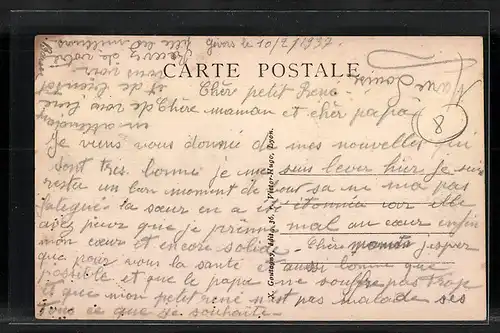 Givors le 10/2/1937.
CARTE POSTALE
Chère petit René
Chère maman et cher papa
Je viens vous donné de mes nouvelles qui
sont tres bonne je me suis lever hier je sui
resta un bon moment de bout sa ne ma pas
fatiguée la sœur en a été étonnée car elle
avez peur que je prenne mal au cœur enfin
mon cœur et encore solide. Chère maman jesper
que pour vous la santé et aussi bonne que
possible et que le papa ne souffre pas trop
et que mon petit rené n'est pas malade ses
tous ce que je souhaite.
en attendant
de vous lire
et de bientot
vous voir
recevez de votre
fille les meilleurs
Marie Louise
8
X. Goutagny, éditeur, 36, r. Victor-Hugo, Lyon.